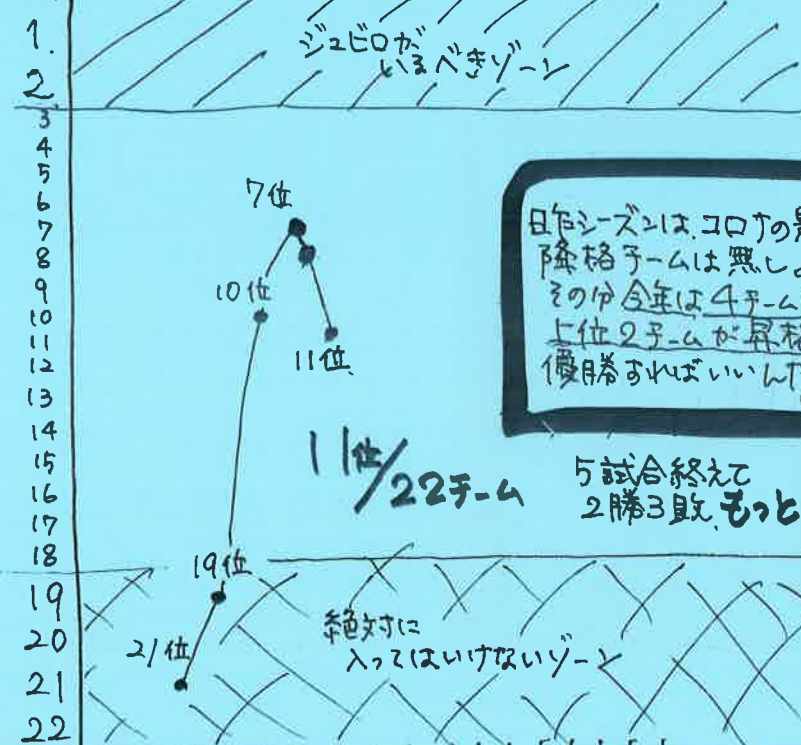 1.
2
3
4
5
6
7
8
9
10
11
12
13
14
15
16
17
18
19
20
21
22
ジュビロが
いるべきゾーン
7位
10位
11位
19位
21位
11位/22チーム
昨シーズンは、コロナの
降格チームは無し
その分今年は4チーム
上位2チームが昇格
優勝すればいいんだ
5試合終えて
2勝3敗、もっと
絶対に
入ってはいけないゾーン